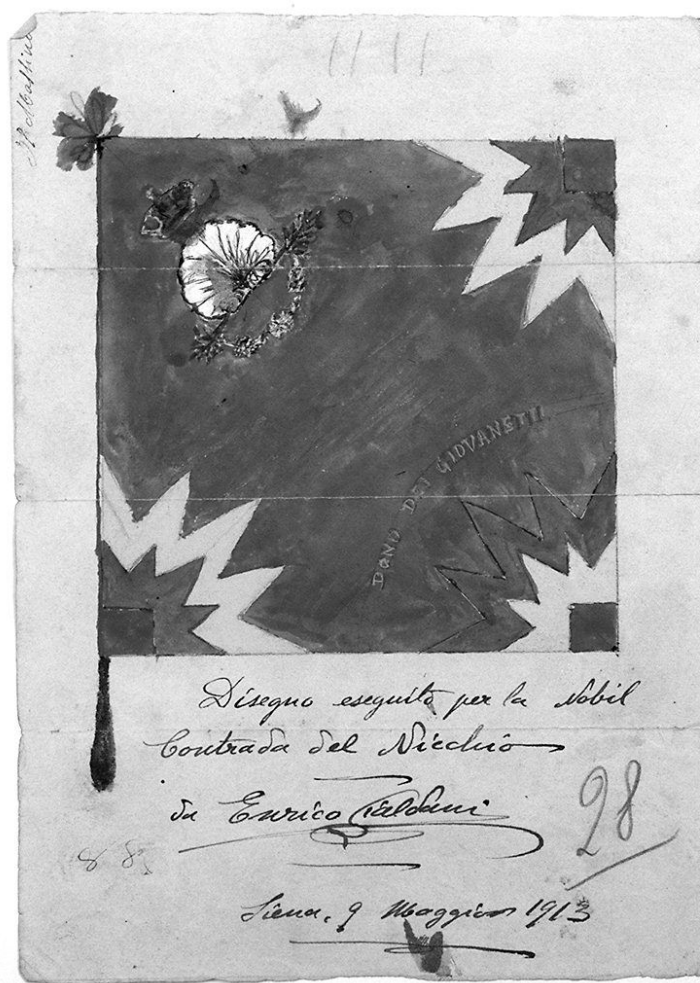 11 11
DONO DEI GIOVANETTI
Disegno eseguito per la Nobil
Contrada del Nicchio
da Enrico
28
8 8
Siena, 9 Maggio 1913